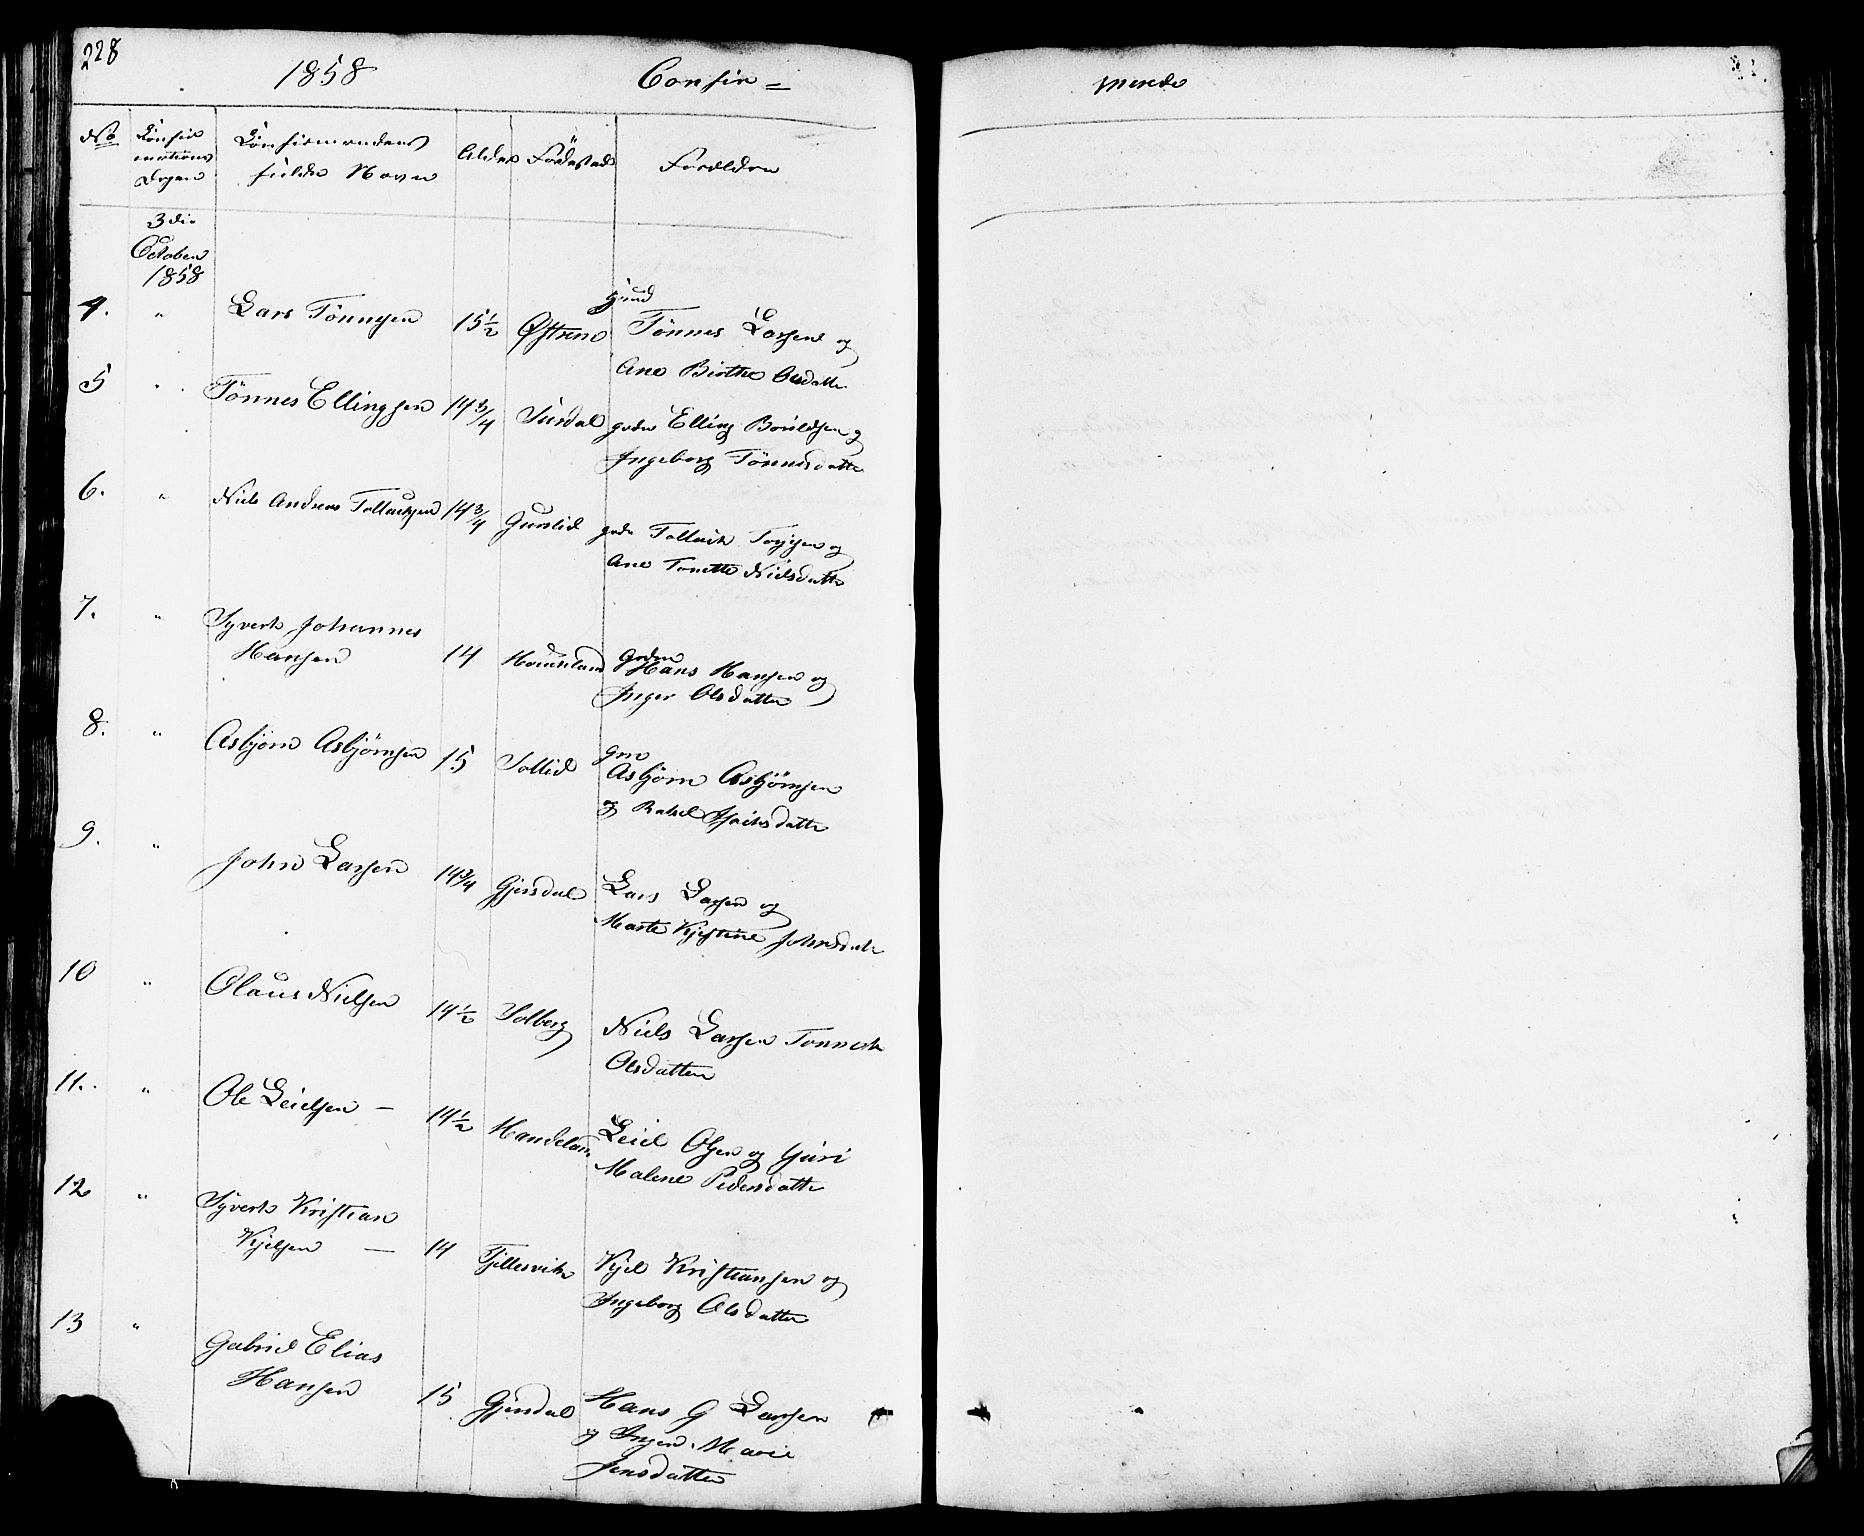 228
1858 Confir = merede
No Konfir Konfirmandens Alder Födested Forældre
mations fulde Navn
Dagen
3die
October
1858
4. " Lars Tönnesen 15½ Østrem Gmd Tönnes Larsen og
Ane Birthe Olsdatter
5 " Tönnes Ellingsen 14¾ Sirdal Elling Bouldsen og
Ingeborg Tönnesdatter
6. " Niels Andreas Tollachsen 14¾ Gunlid Tollach og
Ane Tonette Nielsdatter
7. " Syvert Johannes
Hansen 14 Houkland Hans Hansen og
Inger Olsdatter
8. " Asbjörn Asbjörnsen 15 Sollid Gm Asbjörn Asbjörnsen
og Rakel
9. " John Larsen 14¾ Gjersdal Lars Larsen og
Marte Kjestine Johnsdatter
10 " Olaus Nielsen 14½ Solberg Niels Larsen
Olsdatter
11. " Ole Leielsen – 14½ Handeland Leiel Olsen og Guri
Malene Pedersdatter
12 " Syvert Kristian
Kjelsen – 14 Fjellesvik Kjel Kristiansen og
Ingeborg Olsdatter
13 " Gabriel Elias
Hansen 15 Gjersdal Hans G Larsen
og Inger Marie
Jensdatter